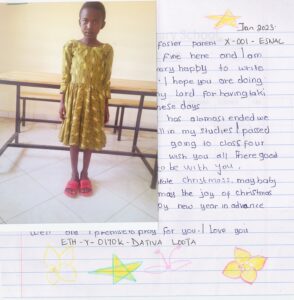 Jan 2023
foster parent X-001-ESNAL
fine here and I am
very happy to write
I hope you are doing
my Lord for having
these days
has ended we
in my studies I passed
going to class four
wish you all there good
to be with you.
christmass, may baby
may the joy of Christmas
new year in advance
well and I promise to pray for you. I love you
ETH-Y-0170K-DATIVA LOOTA